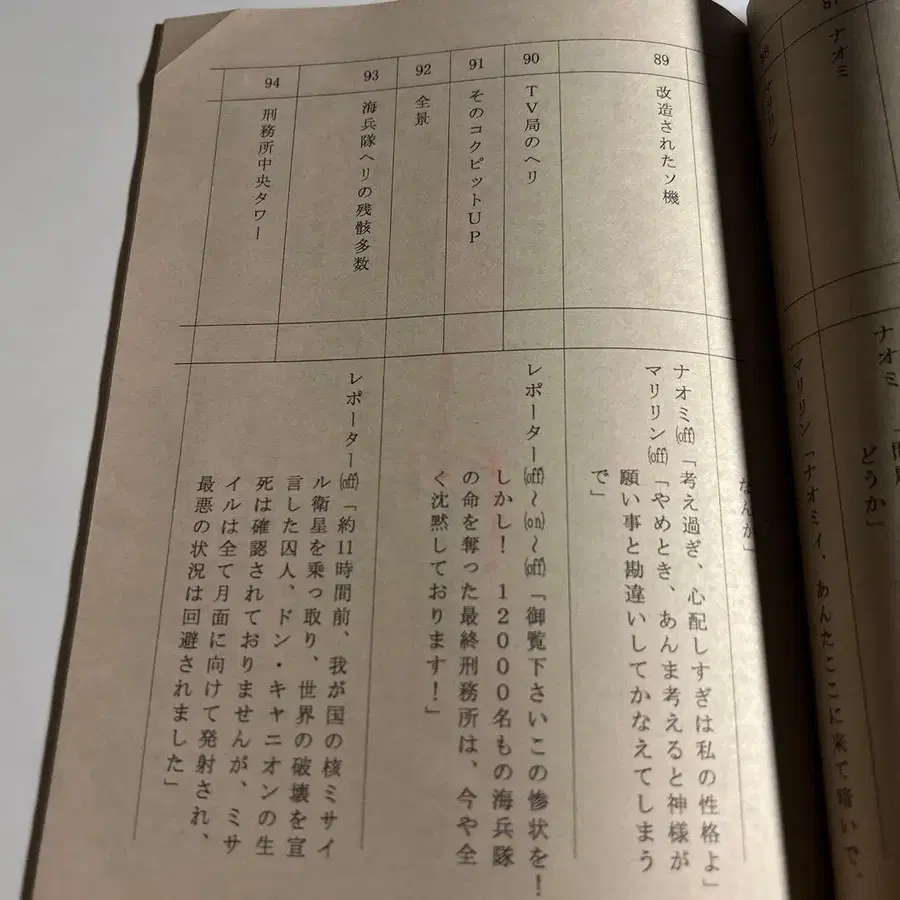 87
ナオミ
ナオミ
どうか」
88
マリリン
マリリン「ナオミィ、あんたここに来て暗いで。
なんか」
89
改造されたソ機
ナオミ(off)「考え過ぎ、心配しすぎは私の性格よ」
マリリン(off)「やめとき、あんま考えると神様が
願い事と勘違いしてかなえてしまう
で」
90
TV局のヘリ
レポーター(off)〜(on)〜(off)「御覧下さいこの惨状を!
しかし! 12000名もの海兵隊
の命を奪った最終刑務所は、今や全
く沈黙しております!」
91
そのコクピットUP
92
全景
93
海兵隊ヘリの残骸多数
レポーター(off)「約11時間前、我が国の核ミサイ
ル衛星を乗っ取り、世界の破壊を宣
言した囚人、ドン・キャニオンの生
死は確認されておりませんが、ミサ
イルは全て月面に向けて発射され、
最悪の状況は回避されました」
94
刑務所中央タワー